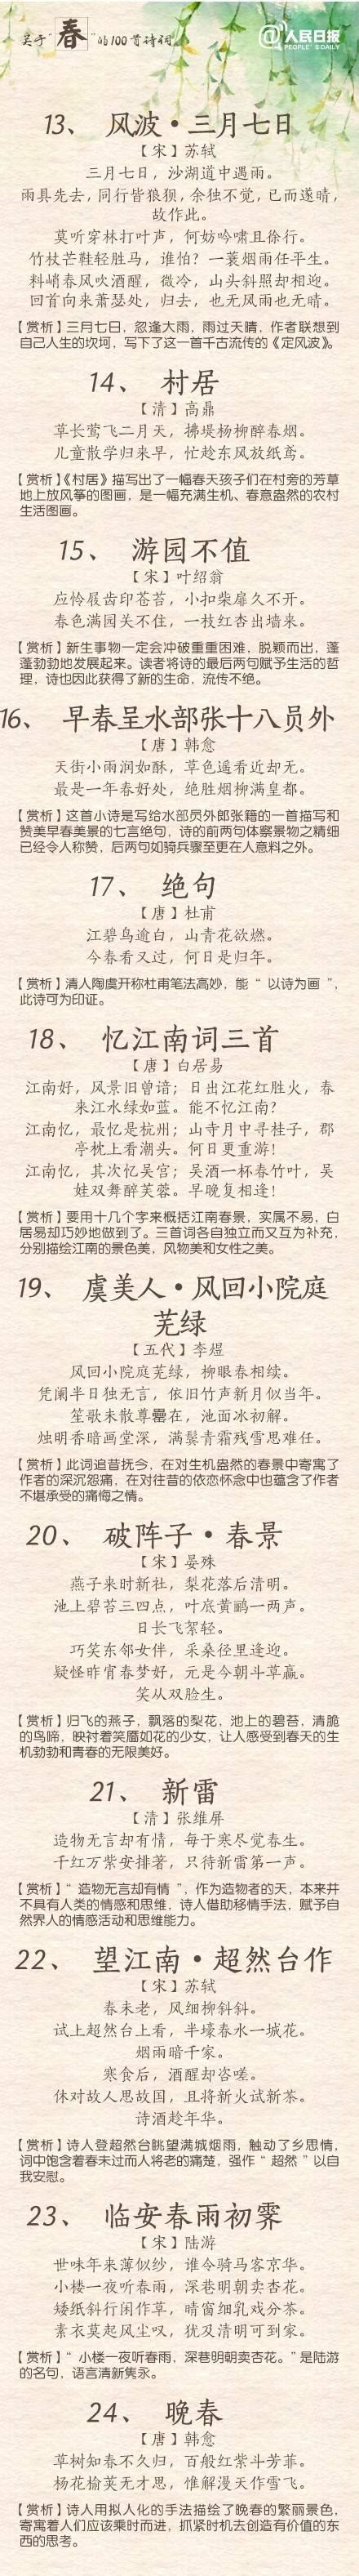 关于“春”的100首诗词
@人民日报
PEOPLE'S DAILY
13、 风波·三月七日
【宋】苏轼
三月七日，沙湖道中遇雨。
雨具先去，同行皆狼狈，余独不觉，已而遂晴，
故作此。
莫听穿林打叶声，何妨吟啸且徐行。
竹杖芒鞋轻胜马，谁怕？一蓑烟雨任平生。
料峭春风吹酒醒，微冷，山头斜照却相迎。
回首向来萧瑟处，归去，也无风雨也无晴。
【赏析】三月七日，忽逢大雨，雨过天晴，作者联想到
自己人生的坎坷，写下了这一首千古流传的《定风波》。
14、 村居
【清】高鼎
草长莺飞二月天，拂堤杨柳醉春烟。
儿童散学归来早，忙趁东风放纸鸢。
【赏析】《村居》描写出了一幅春天孩子们在村旁的芳草
地上放风筝的图画，是一幅充满生机、春意盎然的农村
生活图画。
15、 游园不值
【宋】叶绍翁
应怜屐齿印苍苔，小扣柴扉久不开。
春色满园关不住，一枝红杏出墙来。
【赏析】新生事物一定会冲破重重困难，脱颖而出，蓬
蓬勃勃地发展起来。读者将诗的最后两句赋予生活的哲
理，诗也因此获得了新的生命，流传不绝。
16、 早春呈水部张十八员外
【唐】韩愈
天街小雨润如酥，草色遥看近却无。
最是一年春好处，绝胜烟柳满皇都。
【赏析】这首小诗是写给水部员外郎张籍的一首描写和
赞美早春美景的七言绝句，诗的前两句体察景物之精细
已经令人称赞，后两句如骑兵骤至更在人意料之外。
17、 绝句
【唐】杜甫
江碧鸟逾白，山青花欲燃。
今春看又过，何日是归年。
【赏析】清人陶虞开称杜甫笔法高妙，能“以诗为画”，
此诗可为印证。
18、 忆江南词三首
【唐】白居易
江南好，风景旧曾谙；日出江花红胜火，春
来江水绿如蓝。能不忆江南？
江南忆，最忆是杭州；山寺月中寻桂子，郡
亭枕上看潮头。何日更重游！
江南忆，其次忆吴宫；吴酒一杯春竹叶，吴
娃双舞醉芙蓉。早晚复相逢！
【赏析】要用十几个字来概括江南春景，实属不易，白
居易却巧妙地做到了。三首词各自独立而又互为补充，
分别描绘江南的景色美，风物美和女性之美。
19、 虞美人·风回小院庭
芜绿
【五代】李煜
风回小院庭芜绿，柳眼春相续。
凭阑半日独无言，依旧竹声新月似当年。
笙歌未散尊罍在，池面冰初解。
烛明香暗画堂深，满鬓青霜残雪思难任。
【赏析】此词追昔抚今，在对生机盎然的春景中寄寓了
作者的深沉怨痛，在对往昔的依恋怀念中也蕴含了作者
不堪承受的痛悔之情。
20、 破阵子·春景
【宋】晏殊
燕子来时新社，梨花落后清明。
池上碧苔三四点，叶底黄鹂一两声。
日长飞絮轻。
巧笑东邻女伴，采桑径里逢迎。
疑怪昨宵春梦好，元是今朝斗草赢。
笑从双脸生。
【赏析】归飞的燕子，飘落的梨花、池上的碧苔，清脆
的鸟啼，映衬着笑靥如花的少女，让人感受到春天的生
机勃勃和青春的无限美好。
21、 新雷
【清】张维屏
造物无言却有情，每于寒尽觉春生。
千红万紫安排著，只待新雷第一声。
【赏析】“造物无言却有情”，作为造物者的天，本来并
不具有人类的情感和思维，诗人借助移情手法，赋予自
然界人的情感活动和思维能力。
22、 望江南·超然台作
【宋】苏轼
春未老，风细柳斜斜。
试上超然台上看，半壕春水一城花。
烟雨暗千家。
寒食后，酒醒却咨嗟。
休对故人思故国，且将新火试新茶。
诗酒趁年华。
【赏析】诗人登超然台眺望满城烟雨，触动了乡思情，
词中饱含着春未过而人将老的痛楚，强作“超然”以自
我安慰。
23、 临安春雨初霁
【宋】陆游
世味年来薄似纱，谁令骑马客京华。
小楼一夜听春雨，深巷明朝卖杏花。
矮纸斜行闲作草，晴窗细乳戏分茶。
素衣莫起风尘叹，犹及清明可到家。
【赏析】“小楼一夜听春雨，深巷明朝卖杏花。”是陆游
的名句，语言清新隽永。
24、 晚春
【唐】韩愈
草树知春不久归，百般红紫斗芳菲。
杨花榆荚无才思，惟解漫天作雪飞。
【赏析】诗人用拟人化的手法描绘了晚春的繁丽景色，
寄寓着人们应该乘时而进，抓紧时机去创造有价值的东
西的思考。